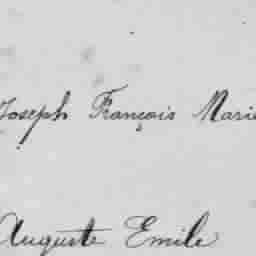 Joseph François Marie
Auguste Emile